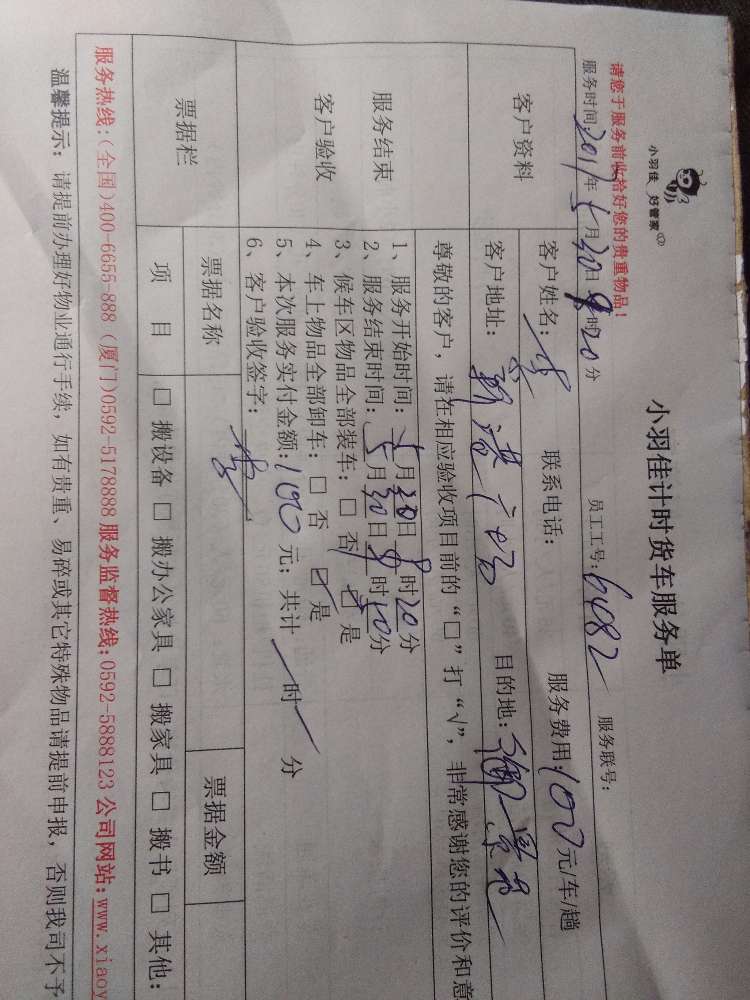 小羽佳 好管家
小羽佳计时货车服务单
请您于服务前收拾好您的贵重物品!
员工工号:6482 服务联号:
服务时间:2015年5月30日8时20分
客户资料
客户姓名: 联系电话: 服务费用:100元/车/趟
客户地址: 目的地:
尊敬的客户，请在相应验收项目前的“□”打“√”，非常感谢您的评价和意
服务结束
客户验收
1、服务开始时间:5月30日8时20分
2、服务结束时间:5月30日9时10分
3、候车区物品全部装车:□ 否 ☑ 是
4、车上物品全部卸车:□ 否 ☑ 是
5、本次服务实付金额:100元; 共计 时 分
6、客户验收签字:
票据栏
票据名称 票据金额
项 目 □ 搬设备 □ 搬办公家具 □ 搬家具 □ 搬书 □ 其他:
服务热线:(全国)400-6655-888 (厦门)0592-5178888 服务监督热线:0592-5888123 公司网站:www.xiaoy
温馨提示: 请提前办理好物业通行手续, 如有贵重、易碎或其它特殊物品请提前申报, 否则我司不予